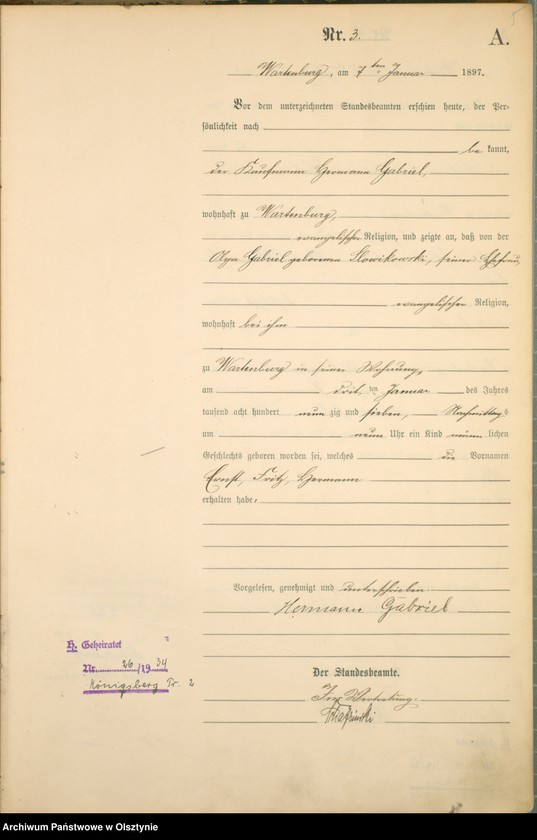 5
Nr. 3.
A.
Wartenburg, am 7ten Januar 1897.
Vor dem unterzeichneten Standesbeamten erschien heute, der Per-
sönlichkeit nach
be kannt,
der Kaufmann Hermann Gabriel,
wohnhaft zu Wartenburg,
evangelischer Religion, und zeigte an, daß von der
Olga Gabriel geborenen Slowikowski, seiner Ehefrau
evangelischer Religion,
wohnhaft bei ihm
zu Wartenburg in seiner Wohnung,
am dritten Januar des Jahres
tausend acht hundert neun zig und sieben, Nachmittags
um neun Uhr ein Kind männ lichen
Geschlechts geboren worden sei, welches die Vornamen
Ernst, Fritz, Hermann
erhalten habe.
Vorgelesen, genehmigt und unterschrieben
Hermann Gabriel
H. Geheiratet
Nr. 26/1934
Königsberg Pr. 2
Der Standesbeamte.
In Vertretung.
Archiwum Państwowe w Olsztynie